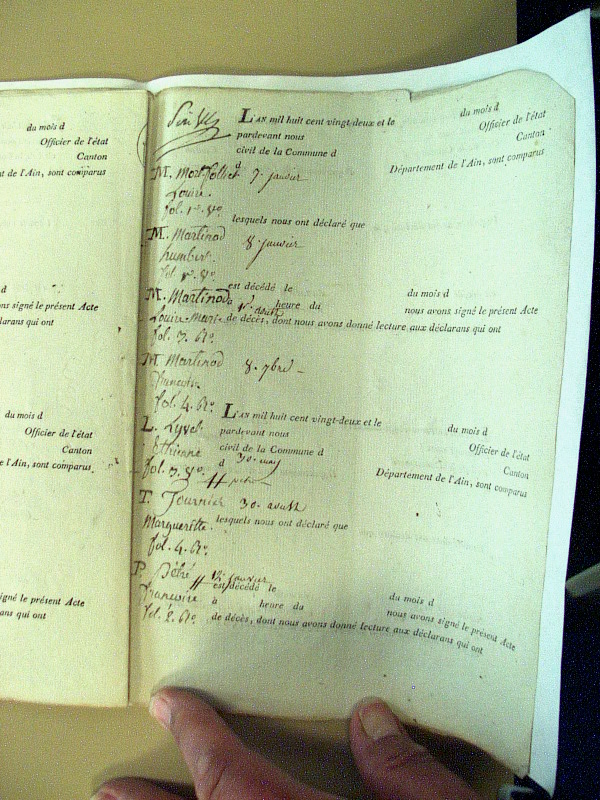 du mois d
Officier de l'état
Canton
nt de l'Ain, sont comparus
ons signé le présent Acte
larans qui ont
du mois d
Officier de l'état
Canton
e l'Ain, sont comparus.
igné le présent Acte
ans qui ont
L'AN mil huit cent vingt-deux et le du mois d
pardevant nous Officier de l'état
civil de la Commune d Canton
d Département de l'Ain, sont comparus
M. 7. janvier
Louise.
fol. 1.º Vº.
lesquels nous ont déclaré que
M. Martinod 8 janvier
humbert.
fol. Vº.
est décédé le du mois d
M. Martinod heure du nous avons signé le présent Acte
Louise Marie de décès, dont nous avons donné lecture aux déclarans qui ont
fol. 3. Rº.
M. Martinod 8. 7bre
françois.
fol. 4. Rº.
L'AN mil huit cent vingt-deux et le du mois d
L. pardevant nous Officier de l'état
Ethienne civil de la Commune d Canton
fol. 3. Vº. d 30. may Département de l'Ain, sont comparus
T. 30. août
Margueritte. lesquels nous ont déclaré que
fol. 4. Rº.
P.
est décédé le du mois d
francoise à heure du nous avons signé le présent Acte
fol. 2. Rº. de décès, dont nous avons donné lecture aux déclarans qui ont